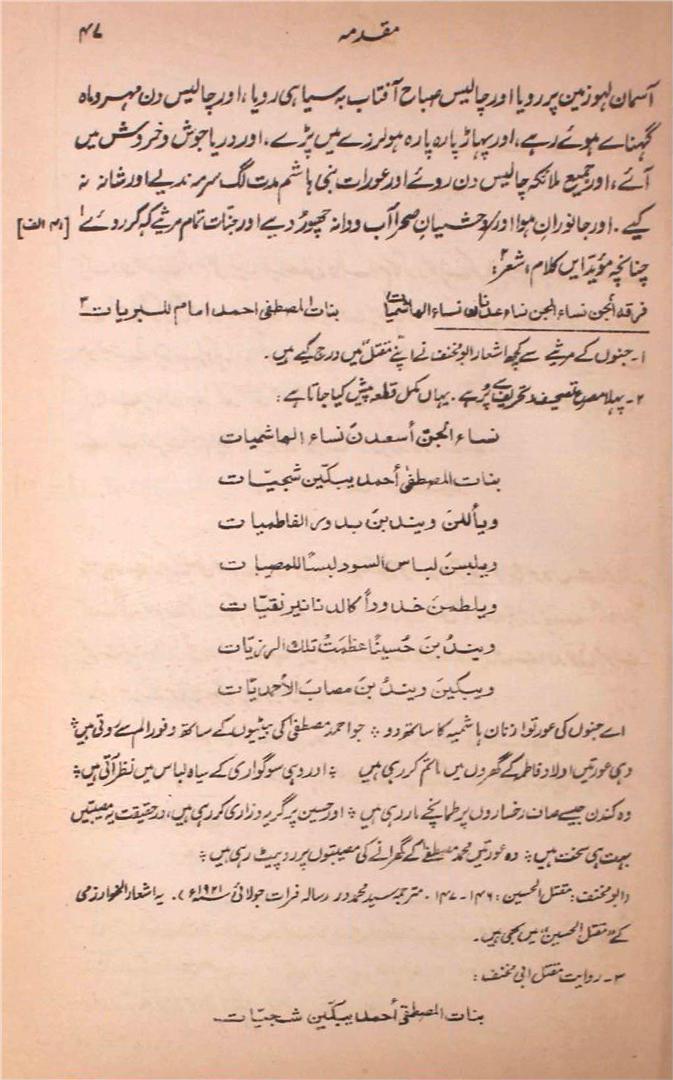 مقدمہ ۴۷
آسمان لہو زمین پر رویا اور چالیس صباح آفتاب بہ سیاہی رویا، اور چالیس دن مہر و ماہ
گہنائے ہوئے رہے، اور پہاڑ پارہ پارہ ہو لرزے میں پڑے، اور دریا جوش و خروش میں
آئے، اور جمیع ملائکہ چالیس دن روئے اور عورات بنی ہاشم مدت لگ سرمہ نہ دیے اور شانہ نہ
کیے. اور جانورانِ ہوا اور وحشیانِ صحرا آب و دانہ چھوڑ دیے اور جنّات تمام مرثیے کہہ کر روئے۱ [۴۱ الف]
چنانچہ مؤید ایں کلام، شعر:۲
فرقه الجن نساء الجن نساء عدنان نساء الهاشمیات بنات المصطفی احمد امام للبریات ۳
۱۔ جنوں کے مرثیے سے کچھ اشعار ابو مخنف نے اپنے مقتل میں درج کیے ہیں.
۲۔ پہلا مصرع تصحیف و تحریف سے پُر ہے. یہاں مکمل قطعہ پیش کیا جاتا ہے:
نساء الجن أسعدن نساء الهاشمیات
بنات المصطفی أحمد یبکین شجیّات
ویأللن ویندبن بدور الفاطمیات
ویلبسن لباس السود لبسًا للمصیبات
ویلطمن خدوداً كالدنانیر نقیّات
ویندُبن حُسینًا عظمت تلك الرزیّات
ویبکین ویندُبن مصاب الأحمدیّات
اے جنوں کی عورتو! زنان ہاشمیہ کا ساتھ دو ؛ جو احمد مصطفیٰ کی بیٹیوں کے ساتھ وفور الم سے روتی ہیں ؛
وہی عورتیں اولاد فاطمہ کے گھروں میں ماتم کر رہی ہیں ؛ اور وہی سوگواری کے سیاہ لباس میں نظر آتی ہیں ؛
وہ کندن جیسے صاف رخساروں پر طمانچے مار رہی ہیں ؛ اور حسین پر گریہ و زاری کر رہی ہیں، درحقیقت یہ مصیبتیں
بہت ہی سخت ہیں ؛ وہ عورتیں محمد مصطفیٰ کے گھرانے کی مصیبتوں پر رو پیٹ رہی ہیں ؛
(ابو مخنف: مقتل الحسین: ۱۴۶ - ۱۴۷. مترجمہ سید محمد در رسالہ فرات جولائی سنہ ۱۹۲۱ء). یہ اشعار الخوارزمی
کے "مقتل الحسین" میں بھی ہیں.
۳۔ روایت مقتل ابی مخنف:
بنات المصطفی أحمد یبکین شجیّات